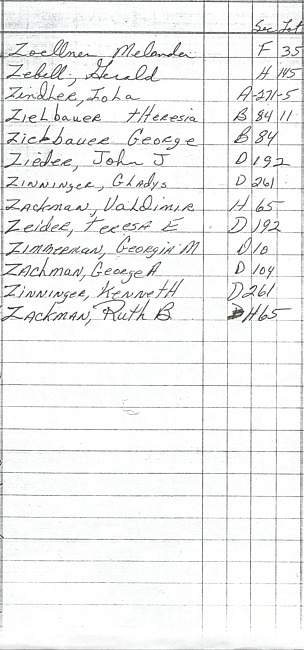 Sec Lot
Zoellner Melander F 35
Zebell, Gerald H 145
Zindler, Iola A-271-5
Ziehbauer Theresia B 84 11
Zickbauer George B 84
Zieder, John J D 192
Zinninger, Gladys D 261
Zackman, Valdimir H 65
Zeider, Teresa E D 192
Zimmerman, Georgia M D 10
Zachman, George A D 104
Zinninger, Kenneth D 261
Zackman, Ruth B H 65